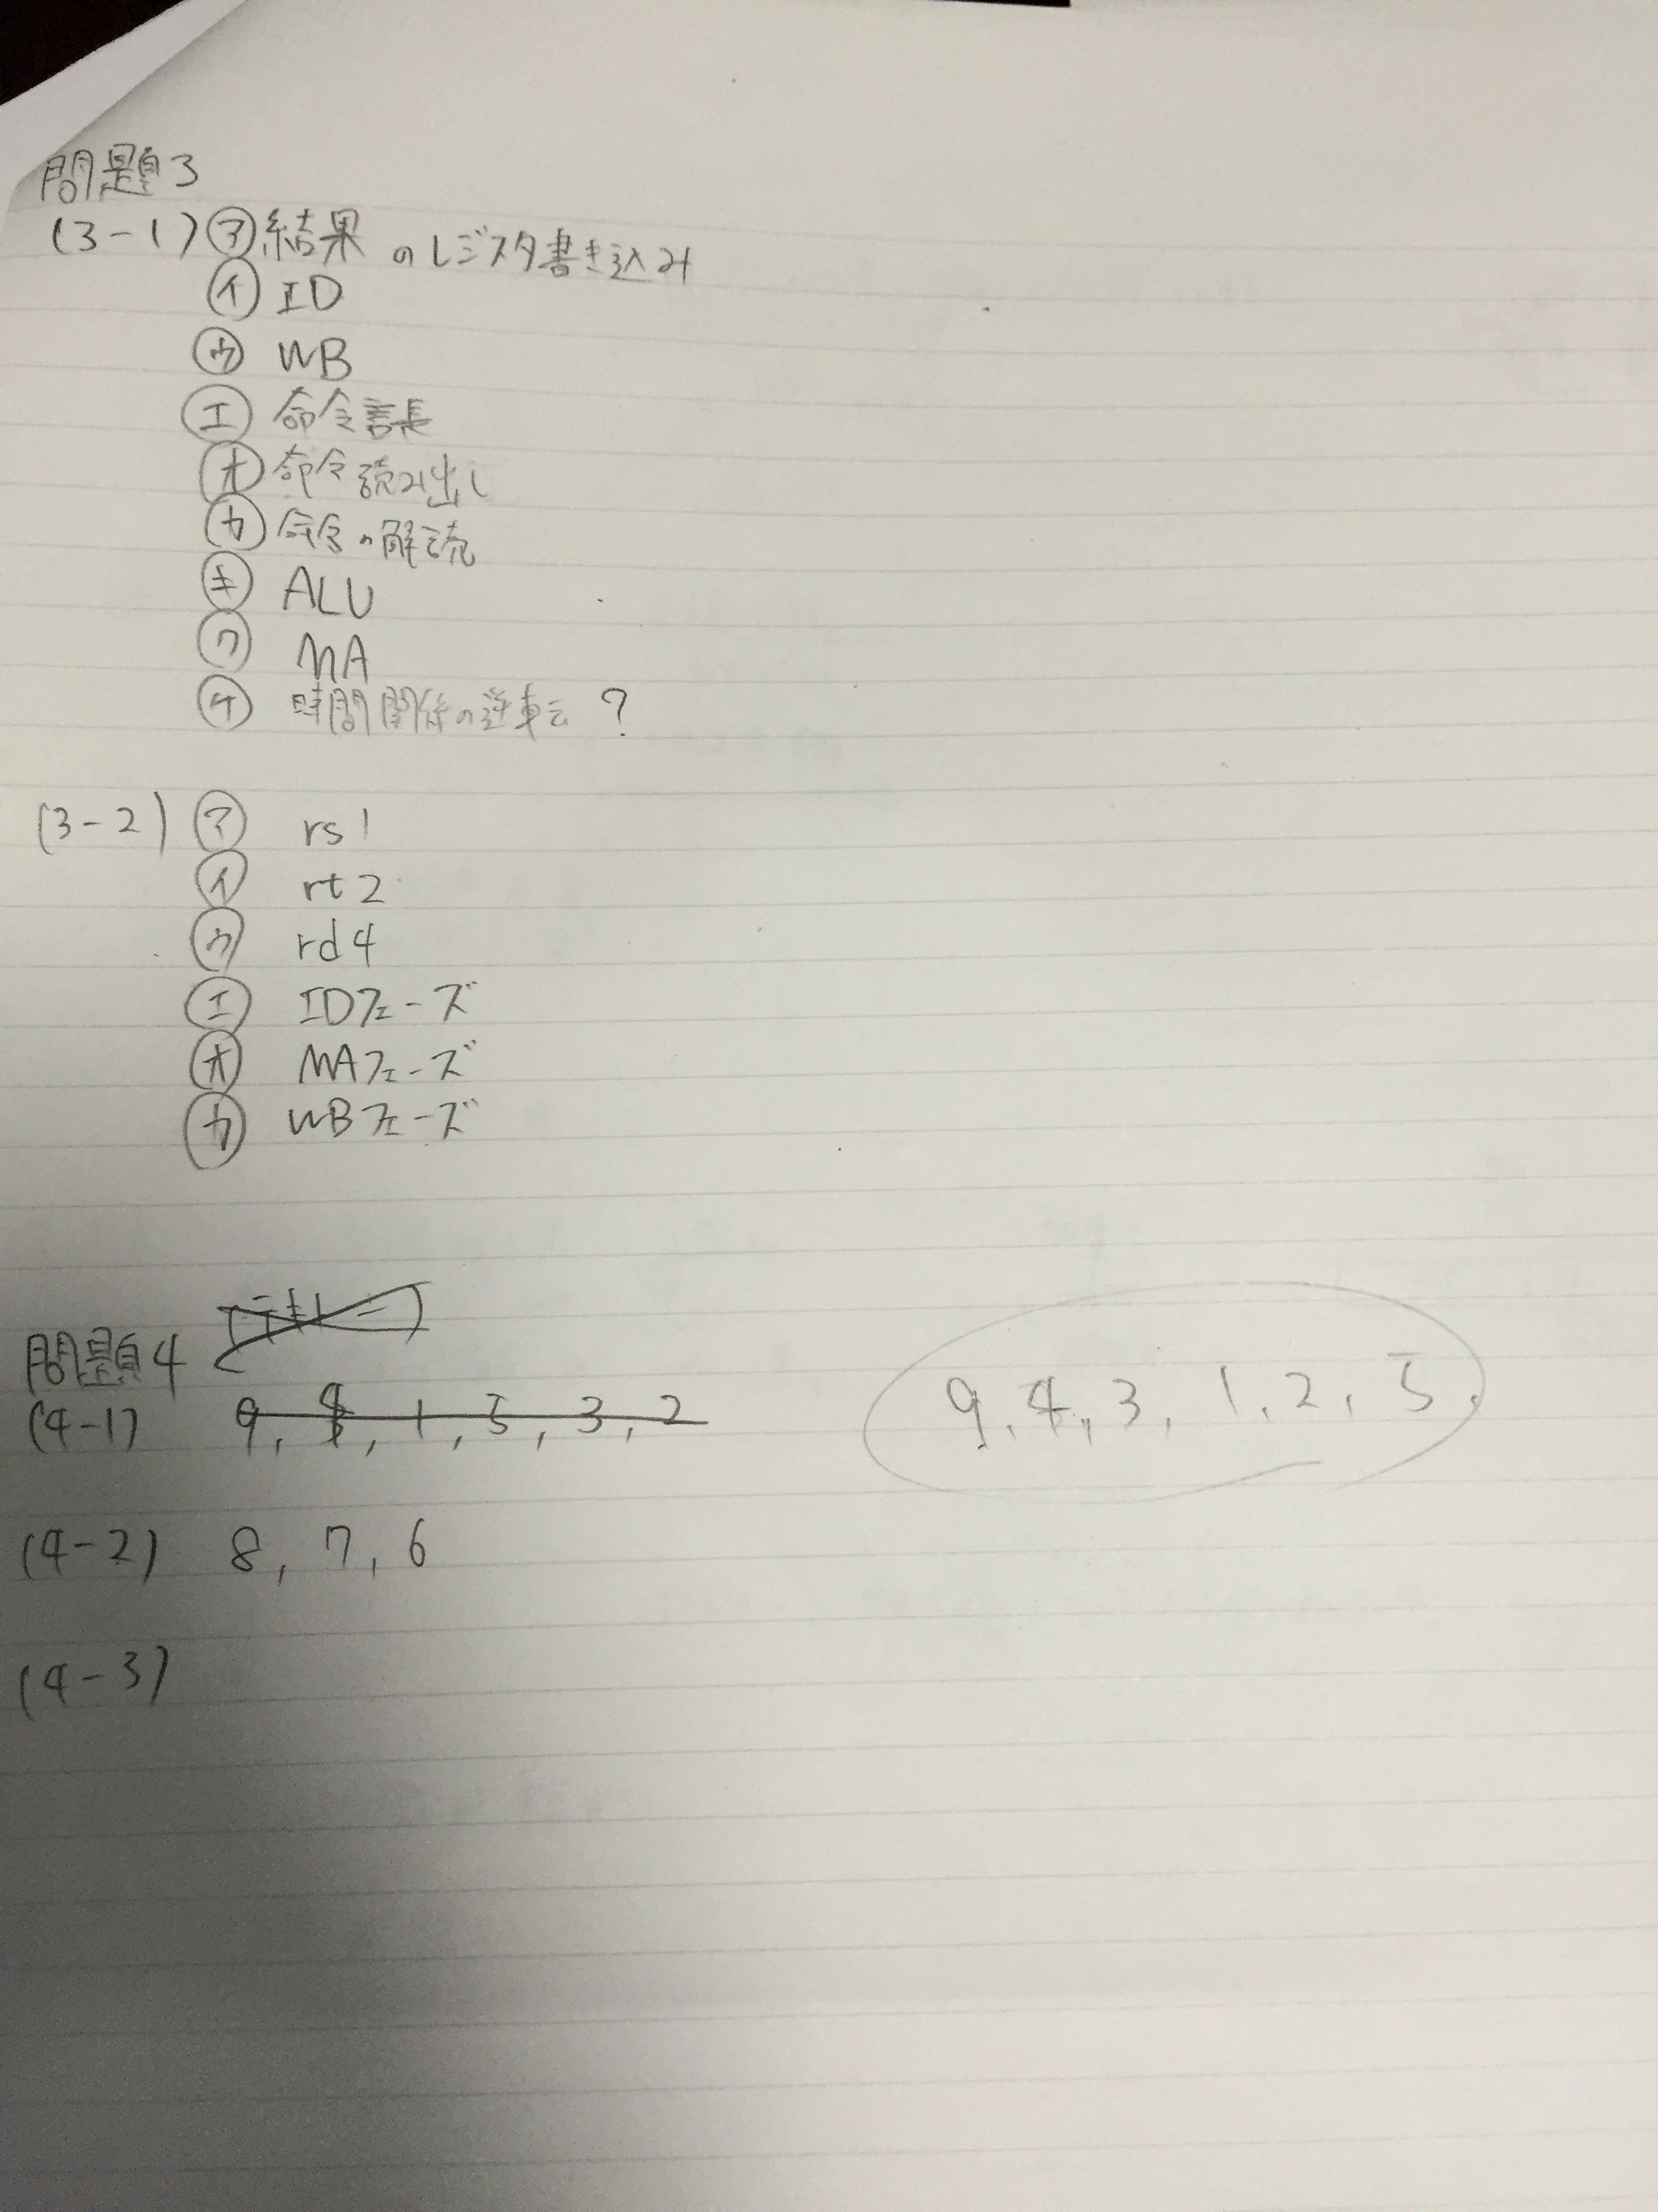 問題3
(3-1) ㋐ 結果のレジスタ書き込み
㋑ ID
㋒ WB
㋓ 命令語長
㋔ 命令読み出し
㋕ 命令の解読
㋖ ALU
㋗ MA
㋘ 時間関係の逆転?
(3-2) ㋐ rs1
㋑ rt2
㋒ rd4
㋓ IDフェーズ
㋔ MAフェーズ
㋕ WBフェーズ
問題4
(4-1) 9, 4, 1, 5, 3, 2 9, 4, 3, 1, 2, 5.
(4-2) 8, 7, 6
(4-3)